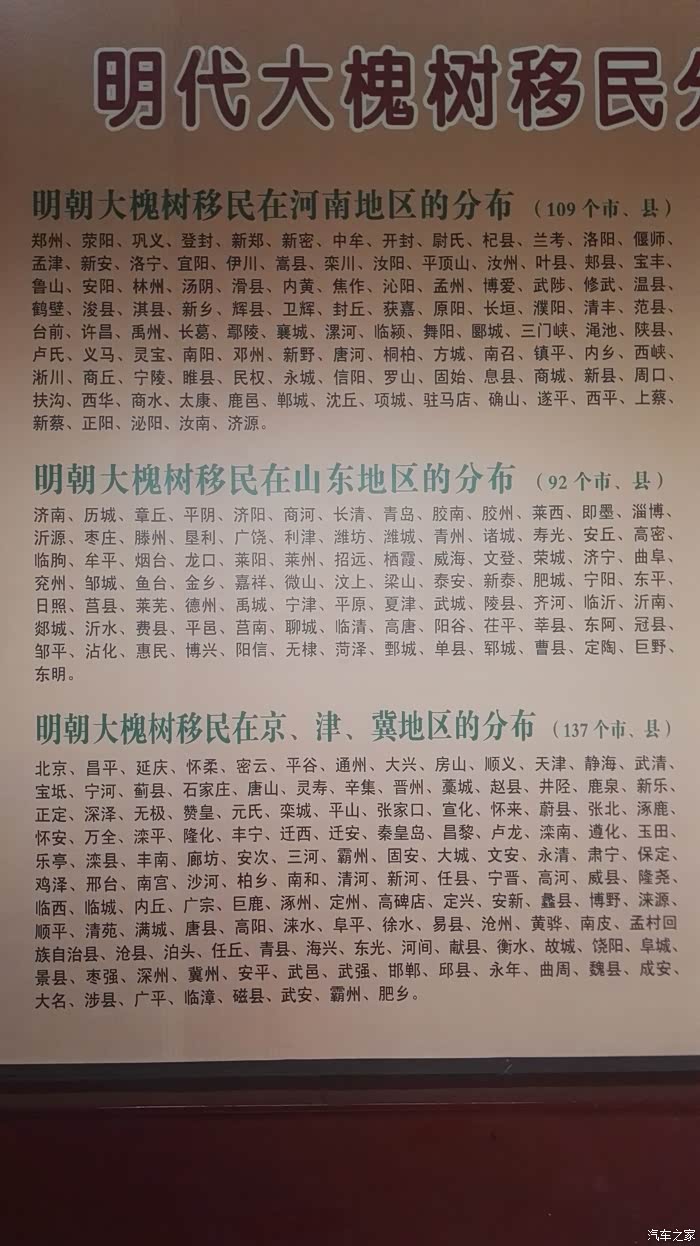 明代大槐树移民分
明朝大槐树移民在河南地区的分布（109个市、县）
郑州、荥阳、巩义、登封、新郑、新密、中牟、开封、尉氏、杞县、兰考、洛阳、偃师、
孟津、新安、洛宁、宜阳、伊川、嵩县、栾川、汝阳、平顶山、汝州、叶县、郏县、宝丰、
鲁山、安阳、林州、汤阴、滑县、内黄、焦作、沁阳、孟州、博爱、武陟、修武、温县、
鹤壁、浚县、淇县、新乡、辉县、卫辉、封丘、获嘉、原阳、长垣、濮阳、清丰、范县、
台前、许昌、禹州、长葛、鄢陵、襄城、漯河、临颍、舞阳、郾城、三门峡、渑池、陕县、
卢氏、义马、灵宝、南阳、邓州、新野、唐河、桐柏、方城、南召、镇平、内乡、西峡、
淅川、商丘、宁陵、睢县、民权、永城、信阳、罗山、固始、息县、商城、新县、周口、
扶沟、西华、商水、太康、鹿邑、郸城、沈丘、项城、驻马店、确山、遂平、西平、上蔡、
新蔡、正阳、泌阳、汝南、济源。
明朝大槐树移民在山东地区的分布（92个市、县）
济南、历城、章丘、平阴、济阳、商河、长清、青岛、胶南、胶州、莱西、即墨、淄博、
沂源、枣庄、滕州、垦利、广饶、利津、潍坊、潍城、青州、诸城、寿光、安丘、高密、
临朐、牟平、烟台、龙口、莱阳、莱州、招远、栖霞、威海、文登、荣城、济宁、曲阜、
兖州、邹城、鱼台、金乡、嘉祥、微山、汶上、梁山、泰安、新泰、肥城、宁阳、东平、
日照、莒县、莱芜、德州、禹城、宁津、平原、夏津、武城、陵县、齐河、临沂、沂南、
郯城、沂水、费县、平邑、莒南、聊城、临清、高唐、阳谷、茌平、莘县、东阿、冠县、
邹平、沾化、惠民、博兴、阳信、无棣、菏泽、鄄城、单县、郓城、曹县、定陶、巨野、
东明。
明朝大槐树移民在京、津、冀地区的分布（137个市、县）
北京、昌平、延庆、怀柔、密云、平谷、通州、大兴、房山、顺义、天津、静海、武清、
宝坻、宁河、蓟县、石家庄、唐山、灵寿、辛集、晋州、藁城、赵县、井陉、鹿泉、新乐、
正定、深泽、无极、赞皇、元氏、栾城、平山、张家口、宣化、怀来、蔚县、张北、涿鹿、
怀安、万全、滦平、隆化、丰宁、迁西、迁安、秦皇岛、昌黎、卢龙、滦南、遵化、玉田、
乐亭、滦县、丰南、廊坊、安次、三河、霸州、固安、大城、文安、永清、肃宁、保定、
鸡泽、邢台、南宫、沙河、柏乡、南和、清河、新河、任县、宁晋、高河、威县、隆尧、
临西、临城、内丘、广宗、巨鹿、涿州、定州、高碑店、定兴、安新、蠡县、博野、涞源、
顺平、清苑、满城、唐县、高阳、涞水、阜平、徐水、易县、沧州、黄骅、南皮、孟村回
族自治县、沧县、泊头、任丘、青县、海兴、东光、河间、献县、衡水、故城、饶阳、阜城、
景县、枣强、深州、冀州、安平、武邑、武强、邯郸、邱县、永年、曲周、魏县、成安、
大名、涉县、广平、临漳、磁县、武安、霸州、肥乡。
汽车之家